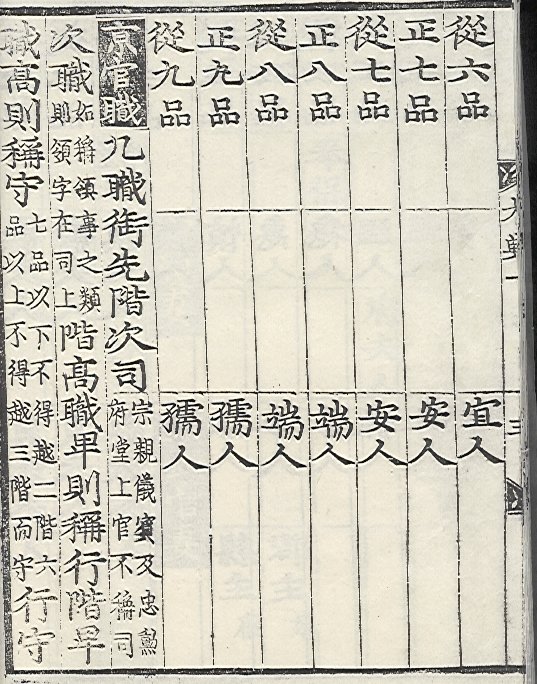 從六品 宜人
正七品 安人
從七品 安人
正八品 端人
從八品 端人
正九品 孺人
從九品 孺人
京官職 凡職銜先階次司 宗親儀賓及忠勳府堂上官不稱司
次職 如稱領事之類則領字在司上 階高職卑則稱行階卑
職高則稱守 七品以下不得越二階六品以上不得越三階而守 行守